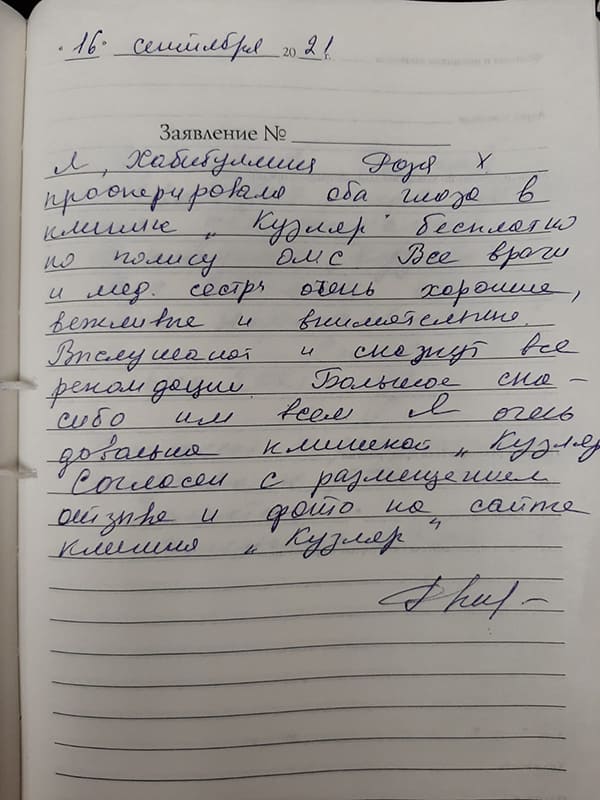 "16" сентября 2021 г.
Заявление №
Я, Хабибуллина Роза Х
прооперировала оба глаза в
клинике „Кузляр" бесплатно
по полису ОМС Все врачи
и мед. сестры очень хорошие,
вежливые и внимательные.
Выслушают и скажут все
рекомдации. Большое спа-
сибо им всем Я очень
довольна клиникой „Кузляр
Согласен с размещением
отзыва и фото на сайте
клиния „Кузляр"